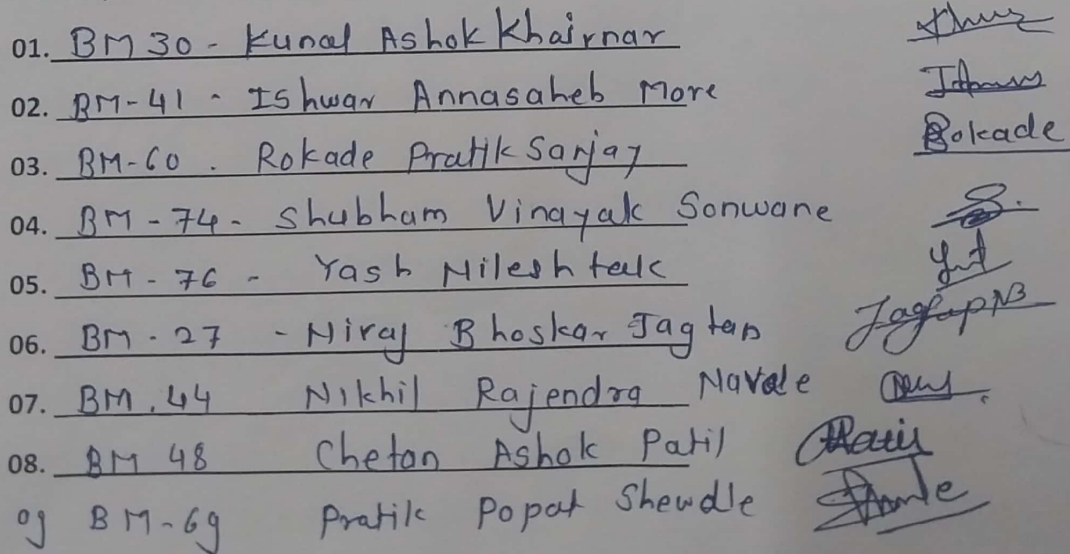 01. BM 30 - Kunal Ashok Khairnar
02. BM-41 - Ishwar Annasaheb More
03. BM-60 . Rokade Pratik Sanjay Rokade
04. BM - 74 - Shubham Vinayak Sonwane S.
05. BM - 76 - Yash Nilesh tak
06. BM - 27 - Niraj Bhaskar Jagtap Jagtap NB
07. BM . 44 Nikhil Rajendra Navale
08. BM 48 Chetan Ashok Patil
09 BM-69 Pratik Popat Shewdle